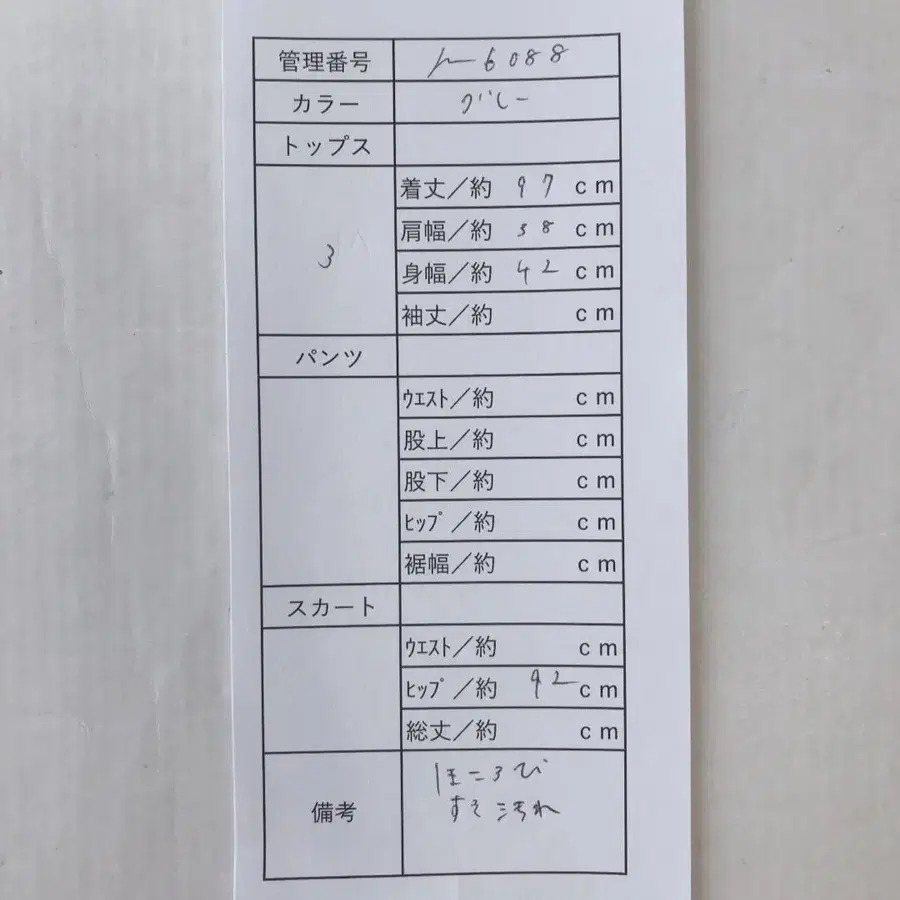 管理番号 6088
カラー グレー
トップス
3
着丈／約 97 cm
肩幅／約 38 cm
身幅／約 42 cm
袖丈／約 cm
パンツ
ｳｴｽﾄ／約 cm
股上／約 cm
股下／約 cm
ﾋｯﾌﾟ／約 cm
裾幅／約 cm
スカート
ｳｴｽﾄ／約 cm
ﾋｯﾌﾟ／約 92 cm
総丈／約 cm
備考
ほころび
すそ汚れ